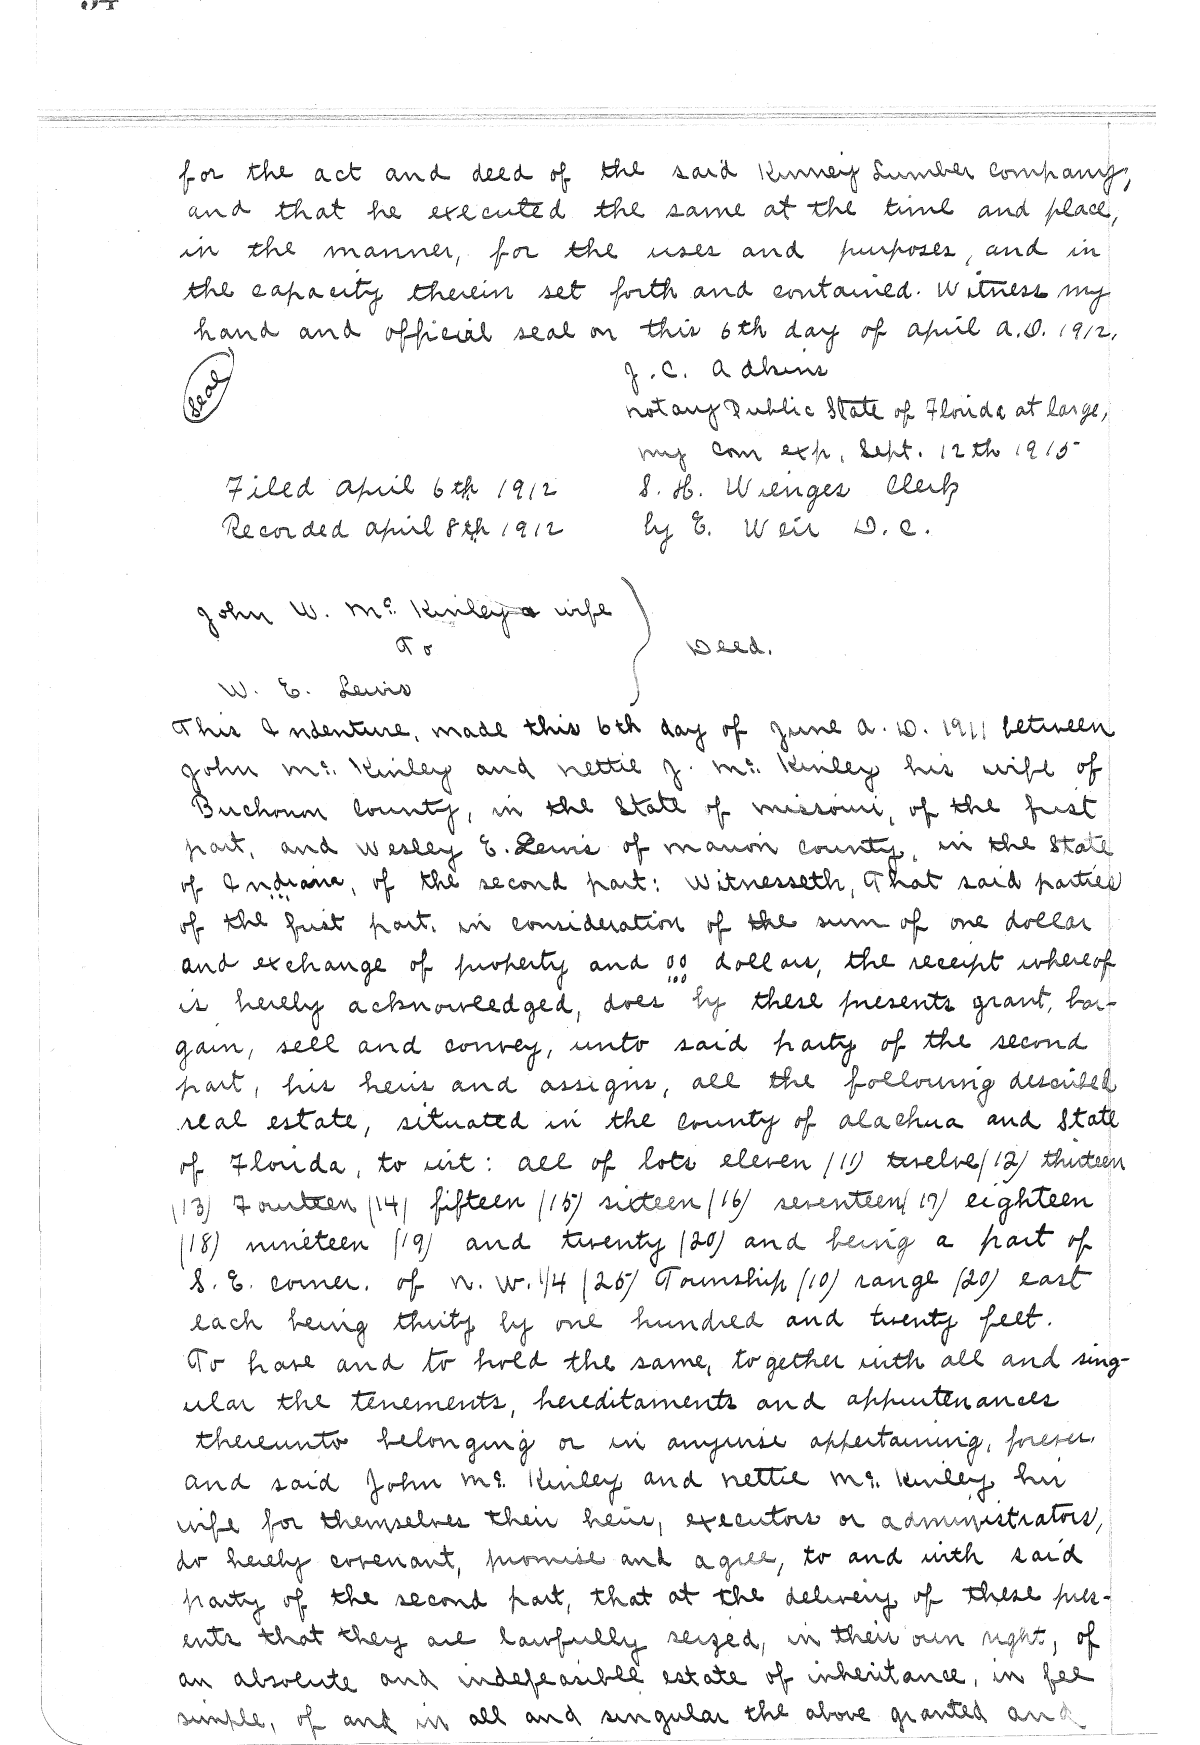 for the act and deed of the said Kinney Lumber Company,
and that he executed the same at the time and place,
in the manner, for the uses and purposes, and in
the capacity therein set forth and contained. Witness my
hand and official seal on this 6th day of April A.D. 1912.
Seal
J. C. Adkins
Notary Public State of Florida at large,
My Com exp. Sept. 12th 1915
Filed April 6th 1912 S. H. Wienges Clerk
Recorded April 8th 1912 by E. Weir D. C.
John W. Mc. Kinley & wife
To Deed.
W. E. Lewis
This Indenture, made this 6th day of June A. D. 1911 between
John Mc. Kinley and Nettie J. Mc. Kinley his wife of
Buchonon County, in the State of Missouri, of the first
part, and Wesley E. Lewis of Marion County, in the State
of Indiana, of the second part: Witnesseth, That said parties
of the first part, in consideration of the sum of one dollar
and exchange of property and 00/100 dollars, the receipt whereof
is hereby acknowledged, does by these presents grant, bar-
gain, sell and convey, unto said party of the second
part, his heirs and assigns, all the following described
real estate, situated in the County of Alachua and State
of Florida, to wit: all of lots eleven (11) twelve (12) thirteen
(13) Fourteen (14) fifteen (15) sixteen (16) seventeen (17) eighteen
(18) nineteen (19) and twenty (20) and being a part of
S. E. corner. of N. W. 1/4 (25) Township (10) range (20) east
each being thirty by one hundred and twenty feet.
To have and to hold the same, together with all and sing-
ular the tenements, hereditaments and appurtenances
thereunto belonging or in anywise appertaining, forever.
and said John Mc. Kinley and Nettie Mc. Kinley his
wife for themselves their heirs, executors or administrators,
do hereby covenant, promise and agree, to and with said
party of the second part, that at the delivery of these pres-
ents that they are lawfully seized, in their own right, of
an absolute and indefeasible estate of inheritance, in fee
simple, of and in all and singular the above granted and